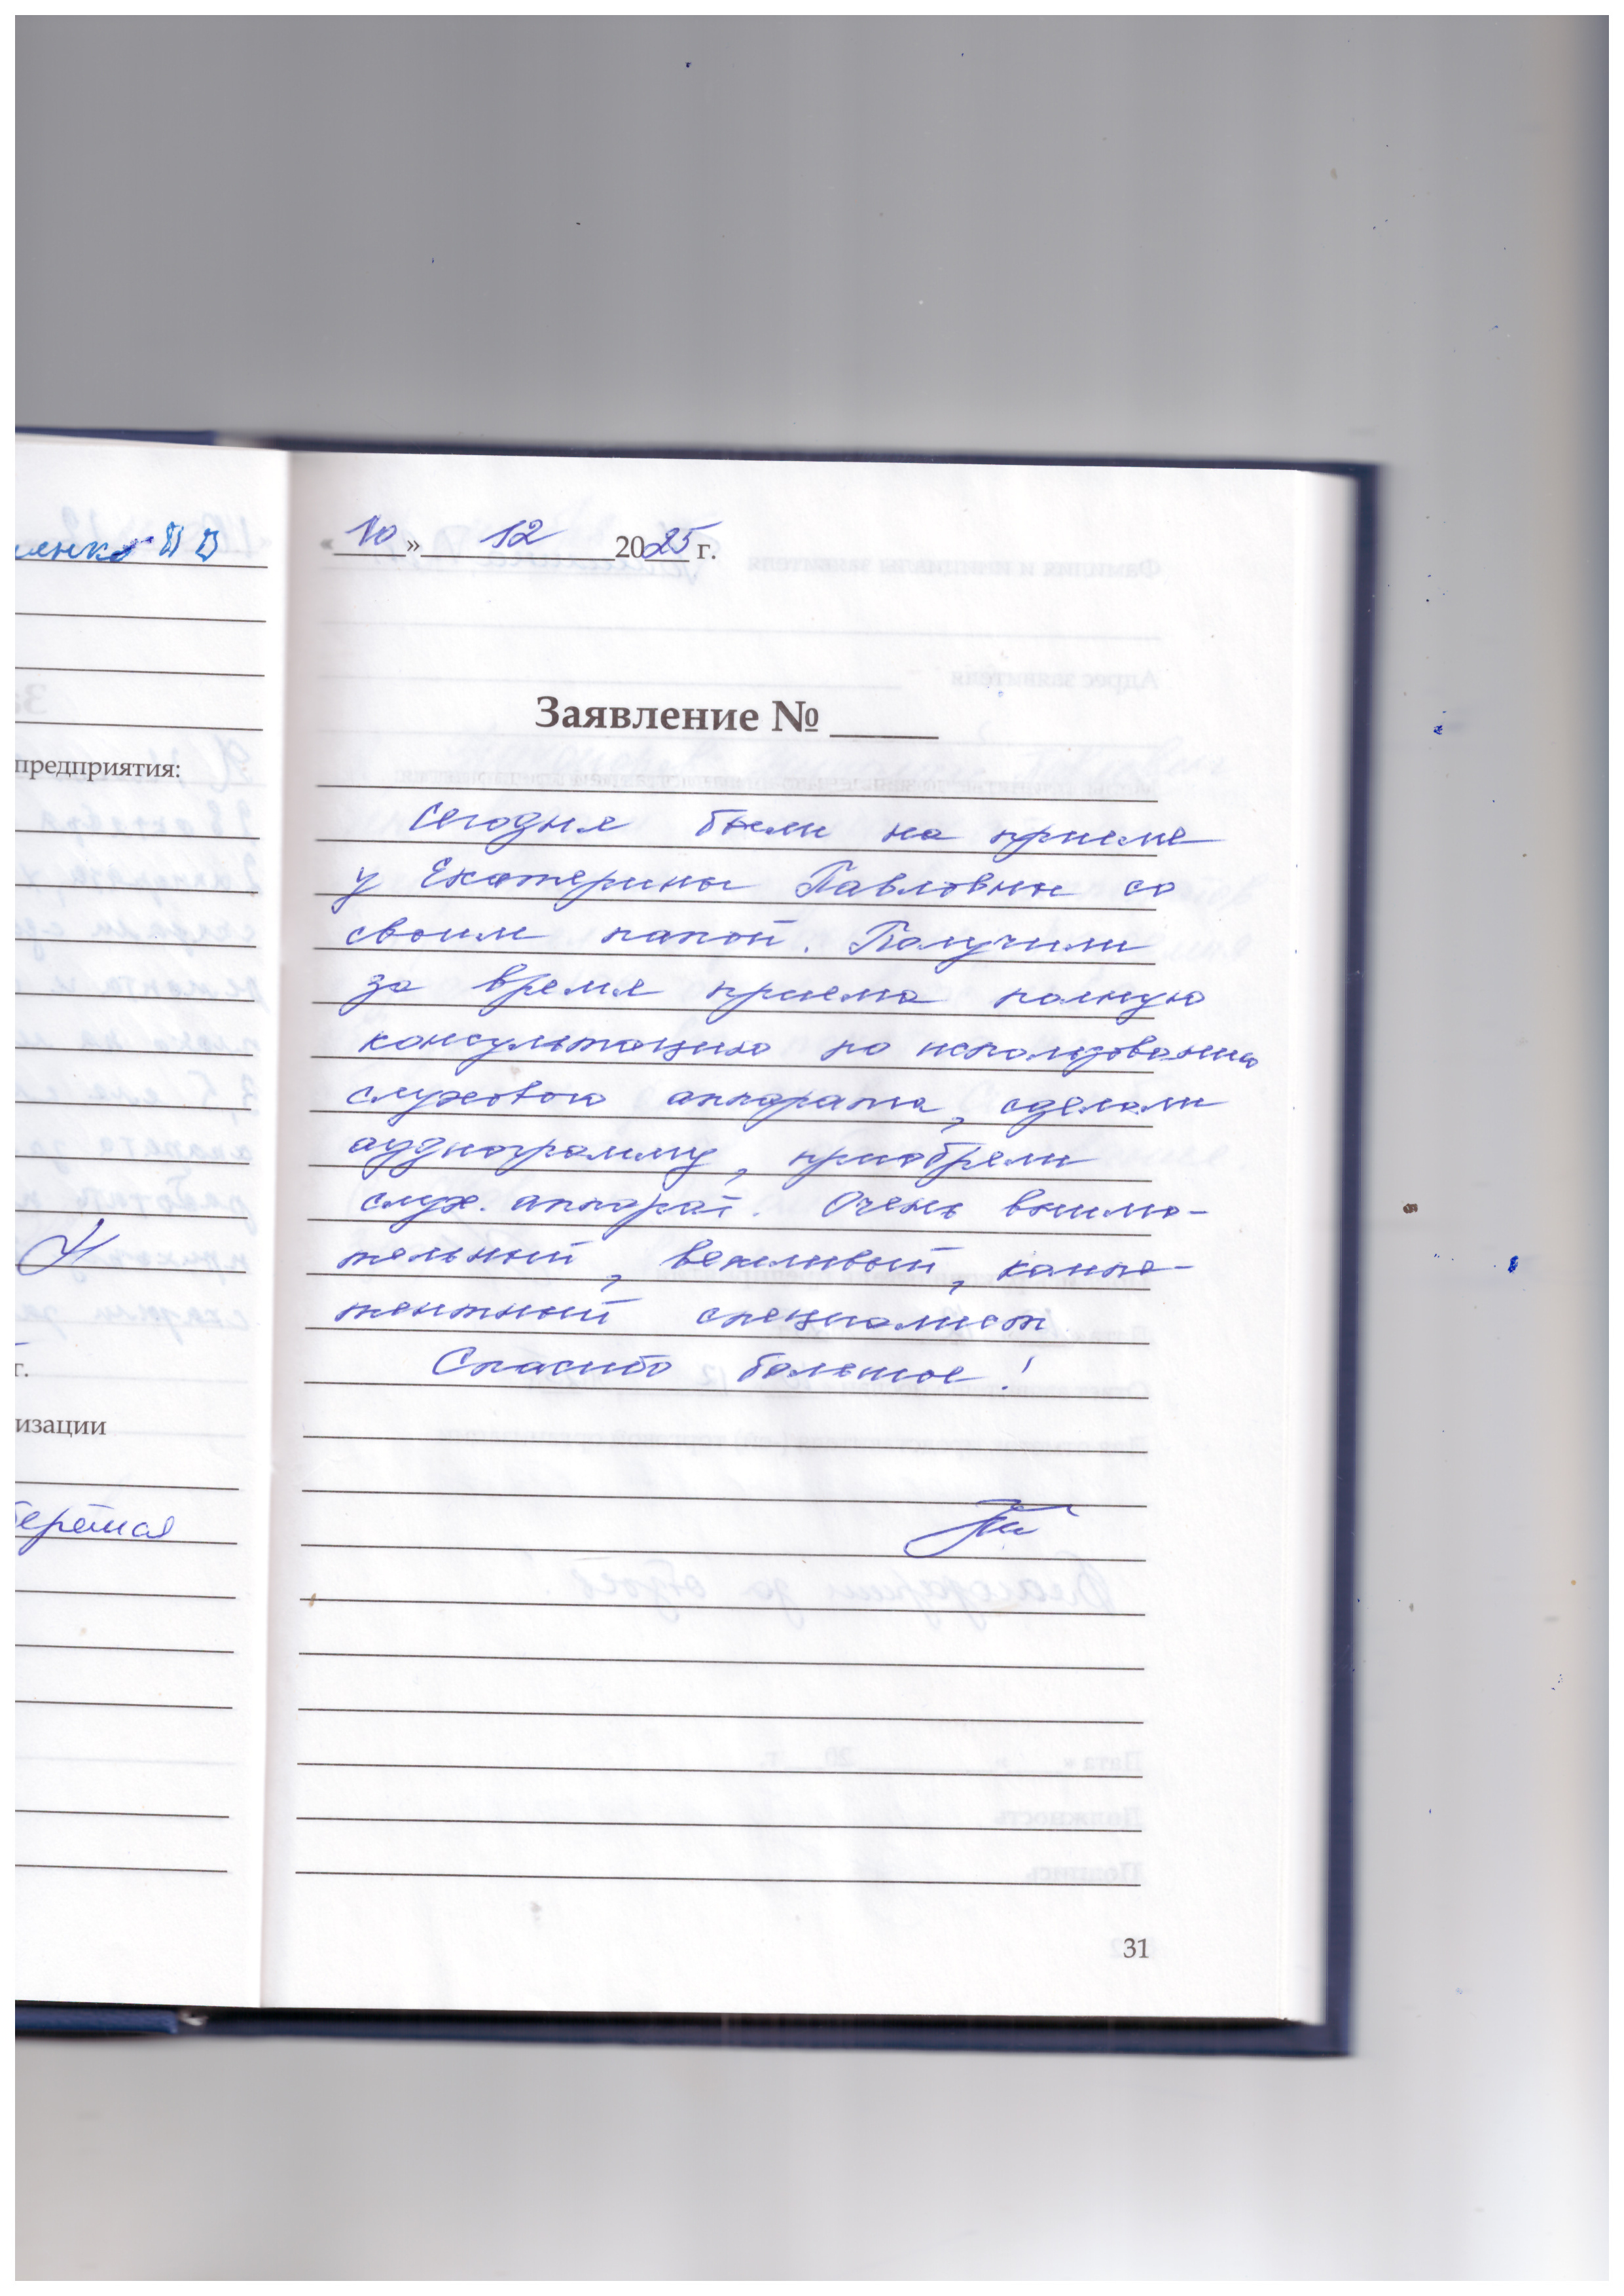 «10» 12 2025 г.
Заявление №
Сегодня были на приеме
у Екатерины Павловны со
своим папой. Получили
за время приема полную
консультацию по использованию
слухового аппарата, сделали
аудиограмму, приобрели
слух. аппарат. Очень внима-
тельный, вежливый, компе-
тентный специалист
Спасибо большое!
31
предприятия:
г.
изации